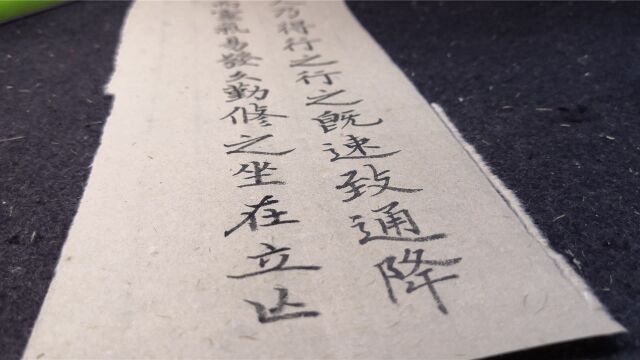 乃得行之行之既速致通降
而靈氣易發久勤修之坐在立亾